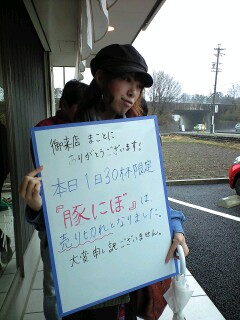 御来店 まことに
ありがとうございます!
本日1日30杯限定
『豚にぼ』は、
売り切れとなりました。
大変申し訳ございません。